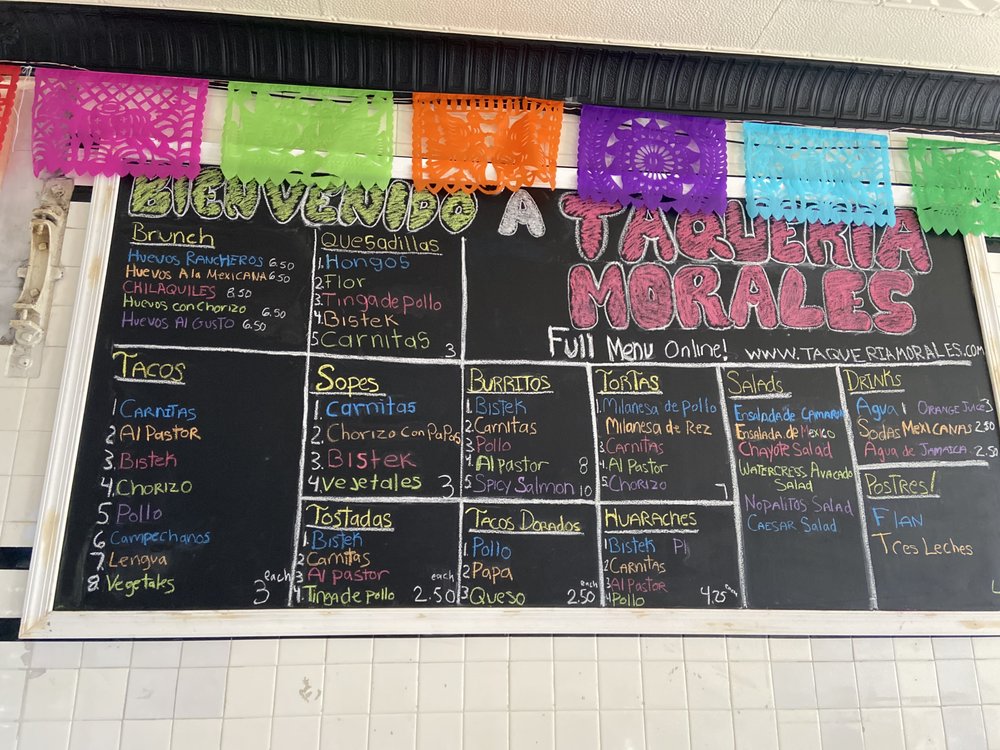 BIENVENIDO A TAQUERIA
MORALES
Full Menu Online! WWW.TAQUERIAMORALES.COM
Brunch
HUEVOS RANCHEROS 6.50
HUEVOS A la MEXICANA 6.50
CHILAQUILES 8.50
HUEVOS con CHORIZO 6.50
HUEVOS Al GUSTO 6.50
Quesadillas
1. Hongos
2. Flor
3. Tinga de pollo
4. Bistek
5. Carnitas 3
TACOS
1 CARNITAS
2 Al PASTOR
3. Bistek
4. CHORIZO
5 Pollo
6 CAMPECHANOS
7. Lengua
8. Vegetales
each
3
Sopes
1. carnitas
2. Chorizo Con Papas
3. Bistek
4 vegetales 3
BURRITOS
1. Bistek
2. Carnitas
3. Pollo
4. Al pastor 8
5. Spicy Salmon 10
TORTAS
1. Milanesa de Pollo
Milanesa de Rez
3. CARNITAS
4. Al Pastor
5. CHORIZO 7
Salads
Ensalada de CAMARON
Ensalada de Mexico
Chayote Salad
WATERCRESS AVACADO
Salad
Nopalitos Salad
CAESAR Salad
DRINKS
Agua 1 ORANGE JUICE 3
SODAS MEXICANAS 2.50
Agua de JAMAICA. 2.50
POSTRES!
FLAN
Tres Leches
Tostadas
1. Bistek
2 Carnitas
3 Al pastor
each
4. Tinga de pollo 2.50
TACOS DORADOS
1 Pollo
2 PAPA
each
3 QUESO 2.50
HUARACHES
1 Bistek
2 CARNITAS
3 Al PASTOR
each
4 Pollo 4.25